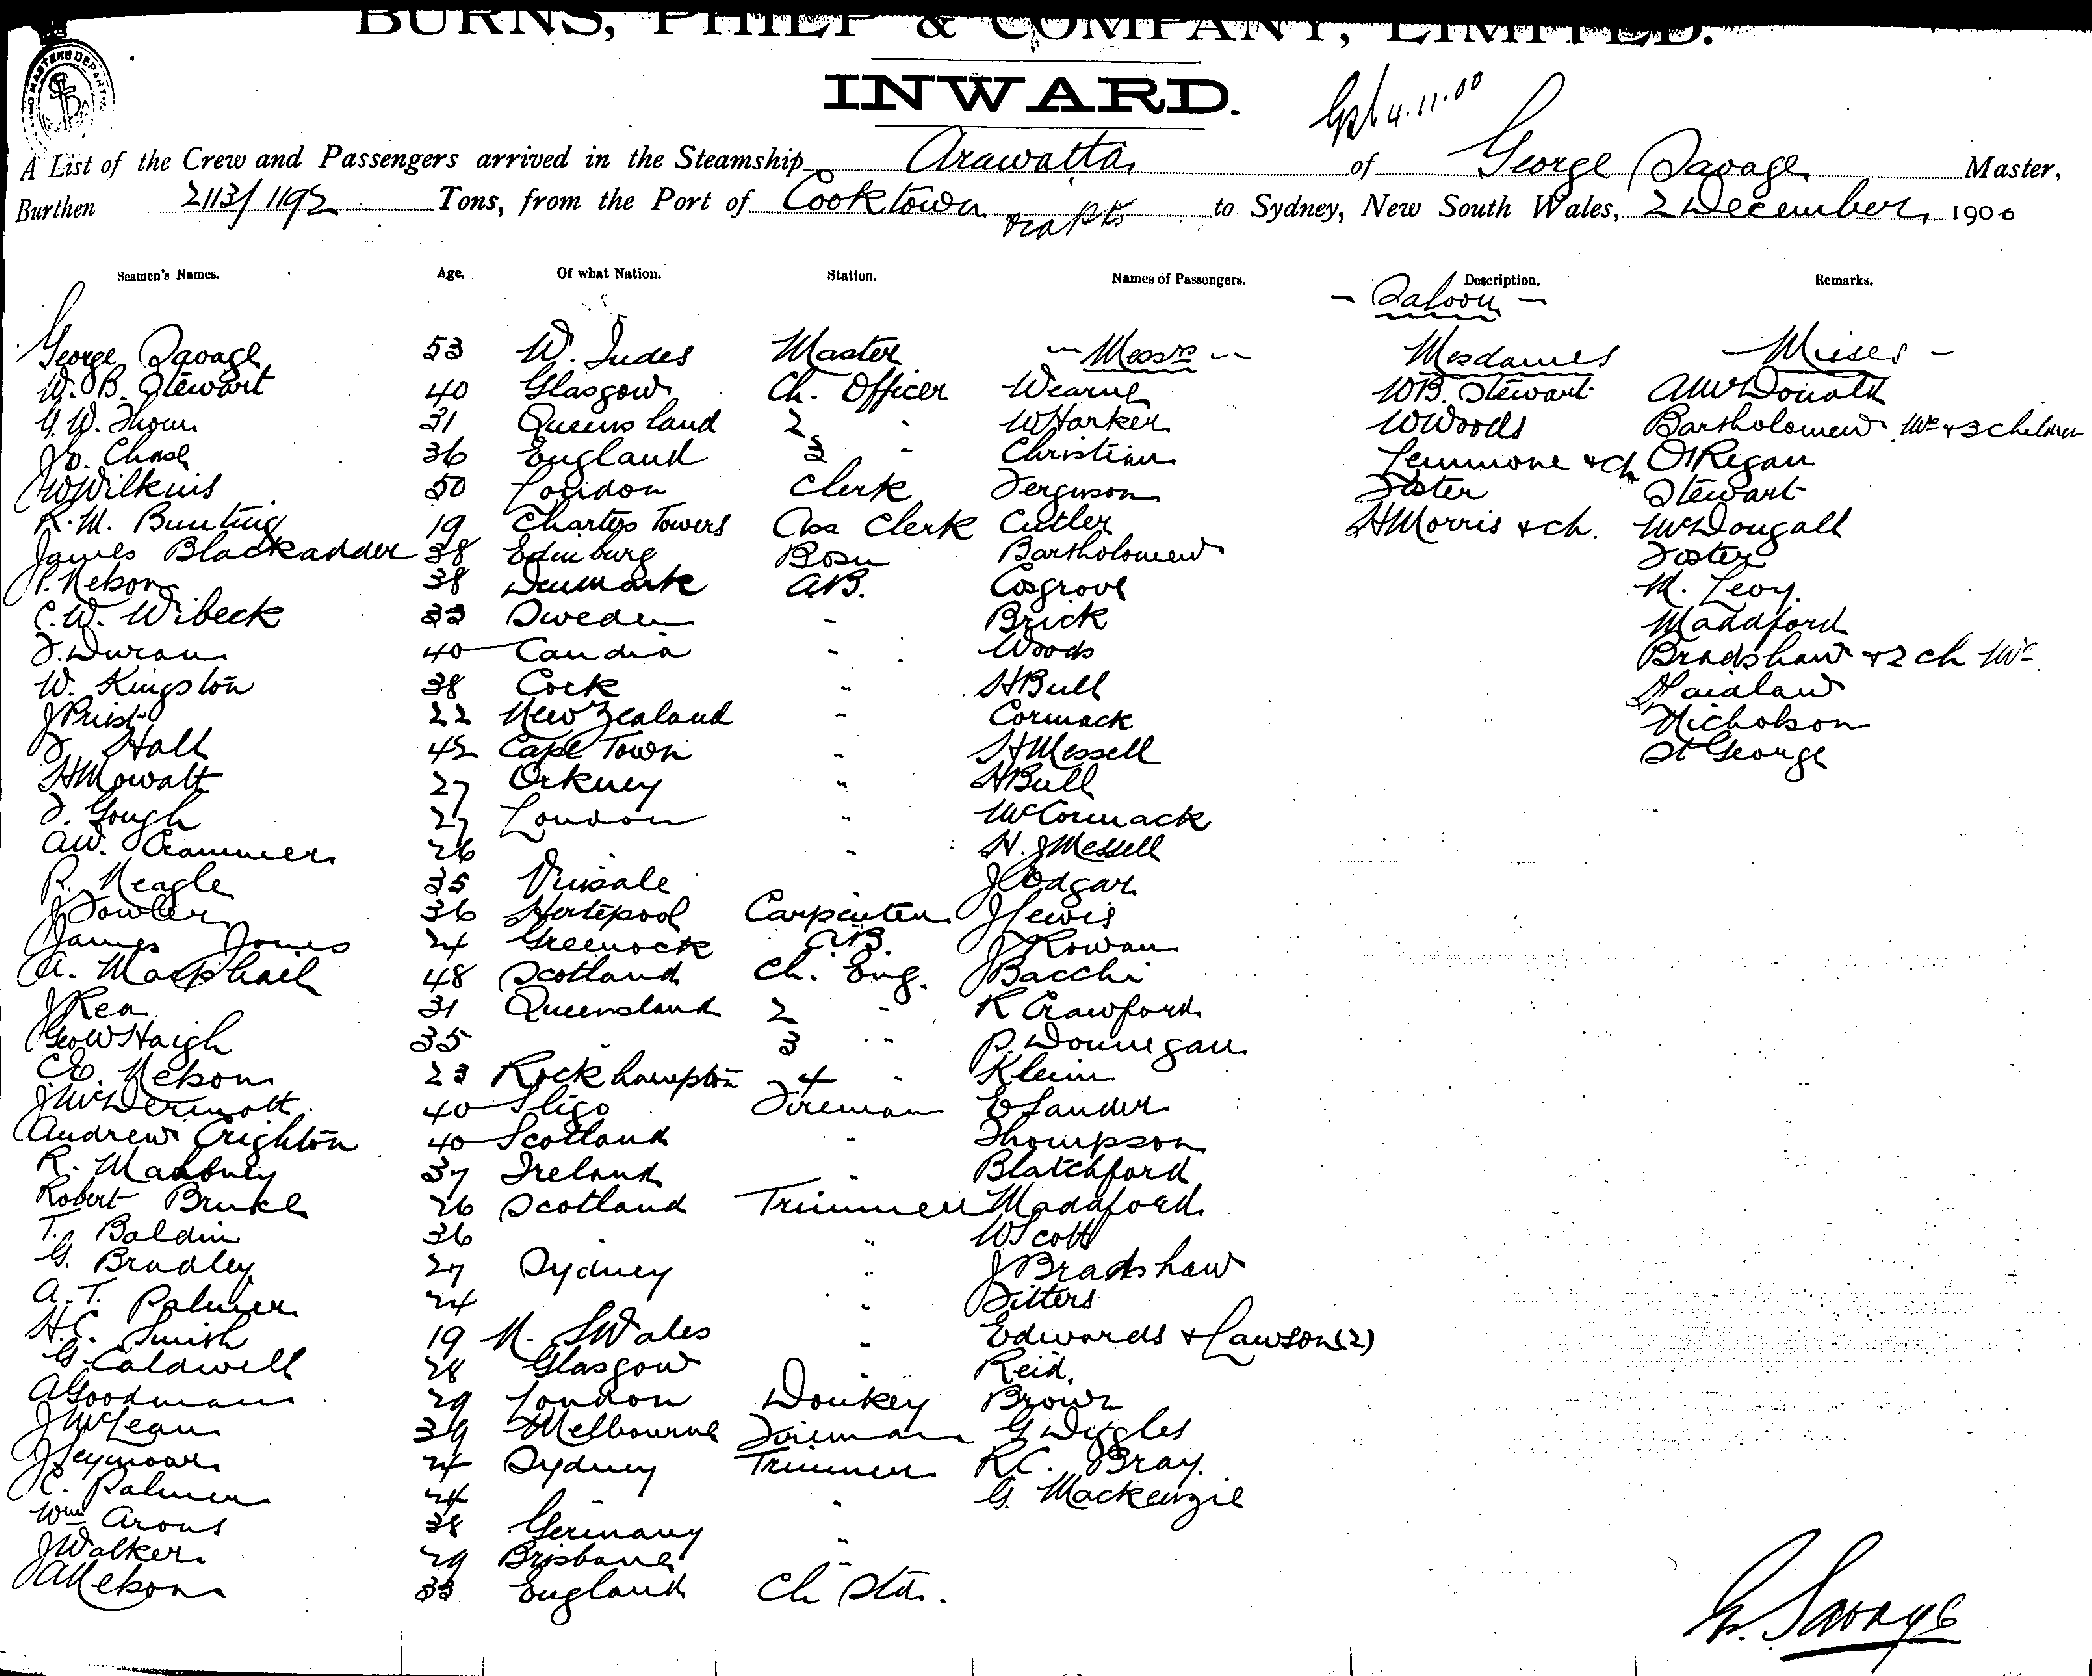 BURNS, PHILP & COMPANY, LIMITED.
INWARD.
4.11.00
A List of the Crew and Passengers arrived in the Steamship Arawatta of George Savage Master,
Burthen 2113/1192 Tons, from the Port of Cooktown via Pts to Sydney, New South Wales, 2 December, 1900
Seamen's Names. Age. Of what Nation. Station. Names of Passengers. Description. Remarks.
- Saloon -
George Savage 53 W. Indes Master - Messrs - Mesdames - Misses -
W. B. Stewart 40 Glasgow Ch. Officer Wearne WB. Stewart A McDonald
G. W. Thom 31 Queensland 2 " W Harker W Woods Bartholomew Mc + 3 children
J. Chase 36 England 3 " Christian Lemmone + ch O'Regan
J W Wilkins 50 London Clerk Ferguson Foster Stewart
R. M. Bunting 19 Charters Towers Ass Clerk Cutler H Morris + ch. McDougall
James Blackadder 38 Edinburg Bosn Bartholomew Foster
P. Nelson 38 Denmark AB. Cosgrove M. Levy.
C. W. Wibeck 33 Sweden " Brick Maddford
J. Duran 40 Candia " Woods Bradshaw + 2 ch Mc
W. Kingston 38 Cork " H Bull Haidlaw
J Priest 22 New Zealand " Cormack Nicholson
Hall 42 Cape Town " H Messell St George
H Mowatt 27 Orkney " H Bull
J. Gough 27 London " McCormack
AW. Crammer 26 " " H. J Messell
R. Neagle 35 J Edgar
J Fowler 36 Hartepool Carpenter J Lewis
James Jones 24 Greenock A.B. J Rowan
A. Macphail 48 Scotland Ch. Eng. Bacchi
J Rea 31 Queensland 2 " R Crawford
Geo W Haigh 35 " 3 " P. Donnegan
C E. Nelson 23 Rockhampton 4 " Klein
J McDermott 40 Sligo Fireman E Sander
Andrew Crighton 40 Scotland " Thompson
R. Mahoney 37 Ireland " Blatchford
Robert Bruce 26 Scotland Trimmer Maddaford
T. Baldin 36 " " W Scott
G. Bradley 27 Sydney " J Bradshaw
A. T. Palmer 24 " Sitters
H.C. Smith 19 N. S Wales " Edwards + Lawson (2)
G. Caldwell 28 Glasgow Reid.
A Goodman 29 London Donkey Brown
J McLean 39 Melbourne Fireman G Diggles
J Seymour 24 Sydney Trimmer R.C. Bray.
C. Palmer 24 " G. Mackenzie
Wm Arons 38 Germany "
J Walker 29 Brisbane "
A Nelson 33 England Ch Std.
G. Savage